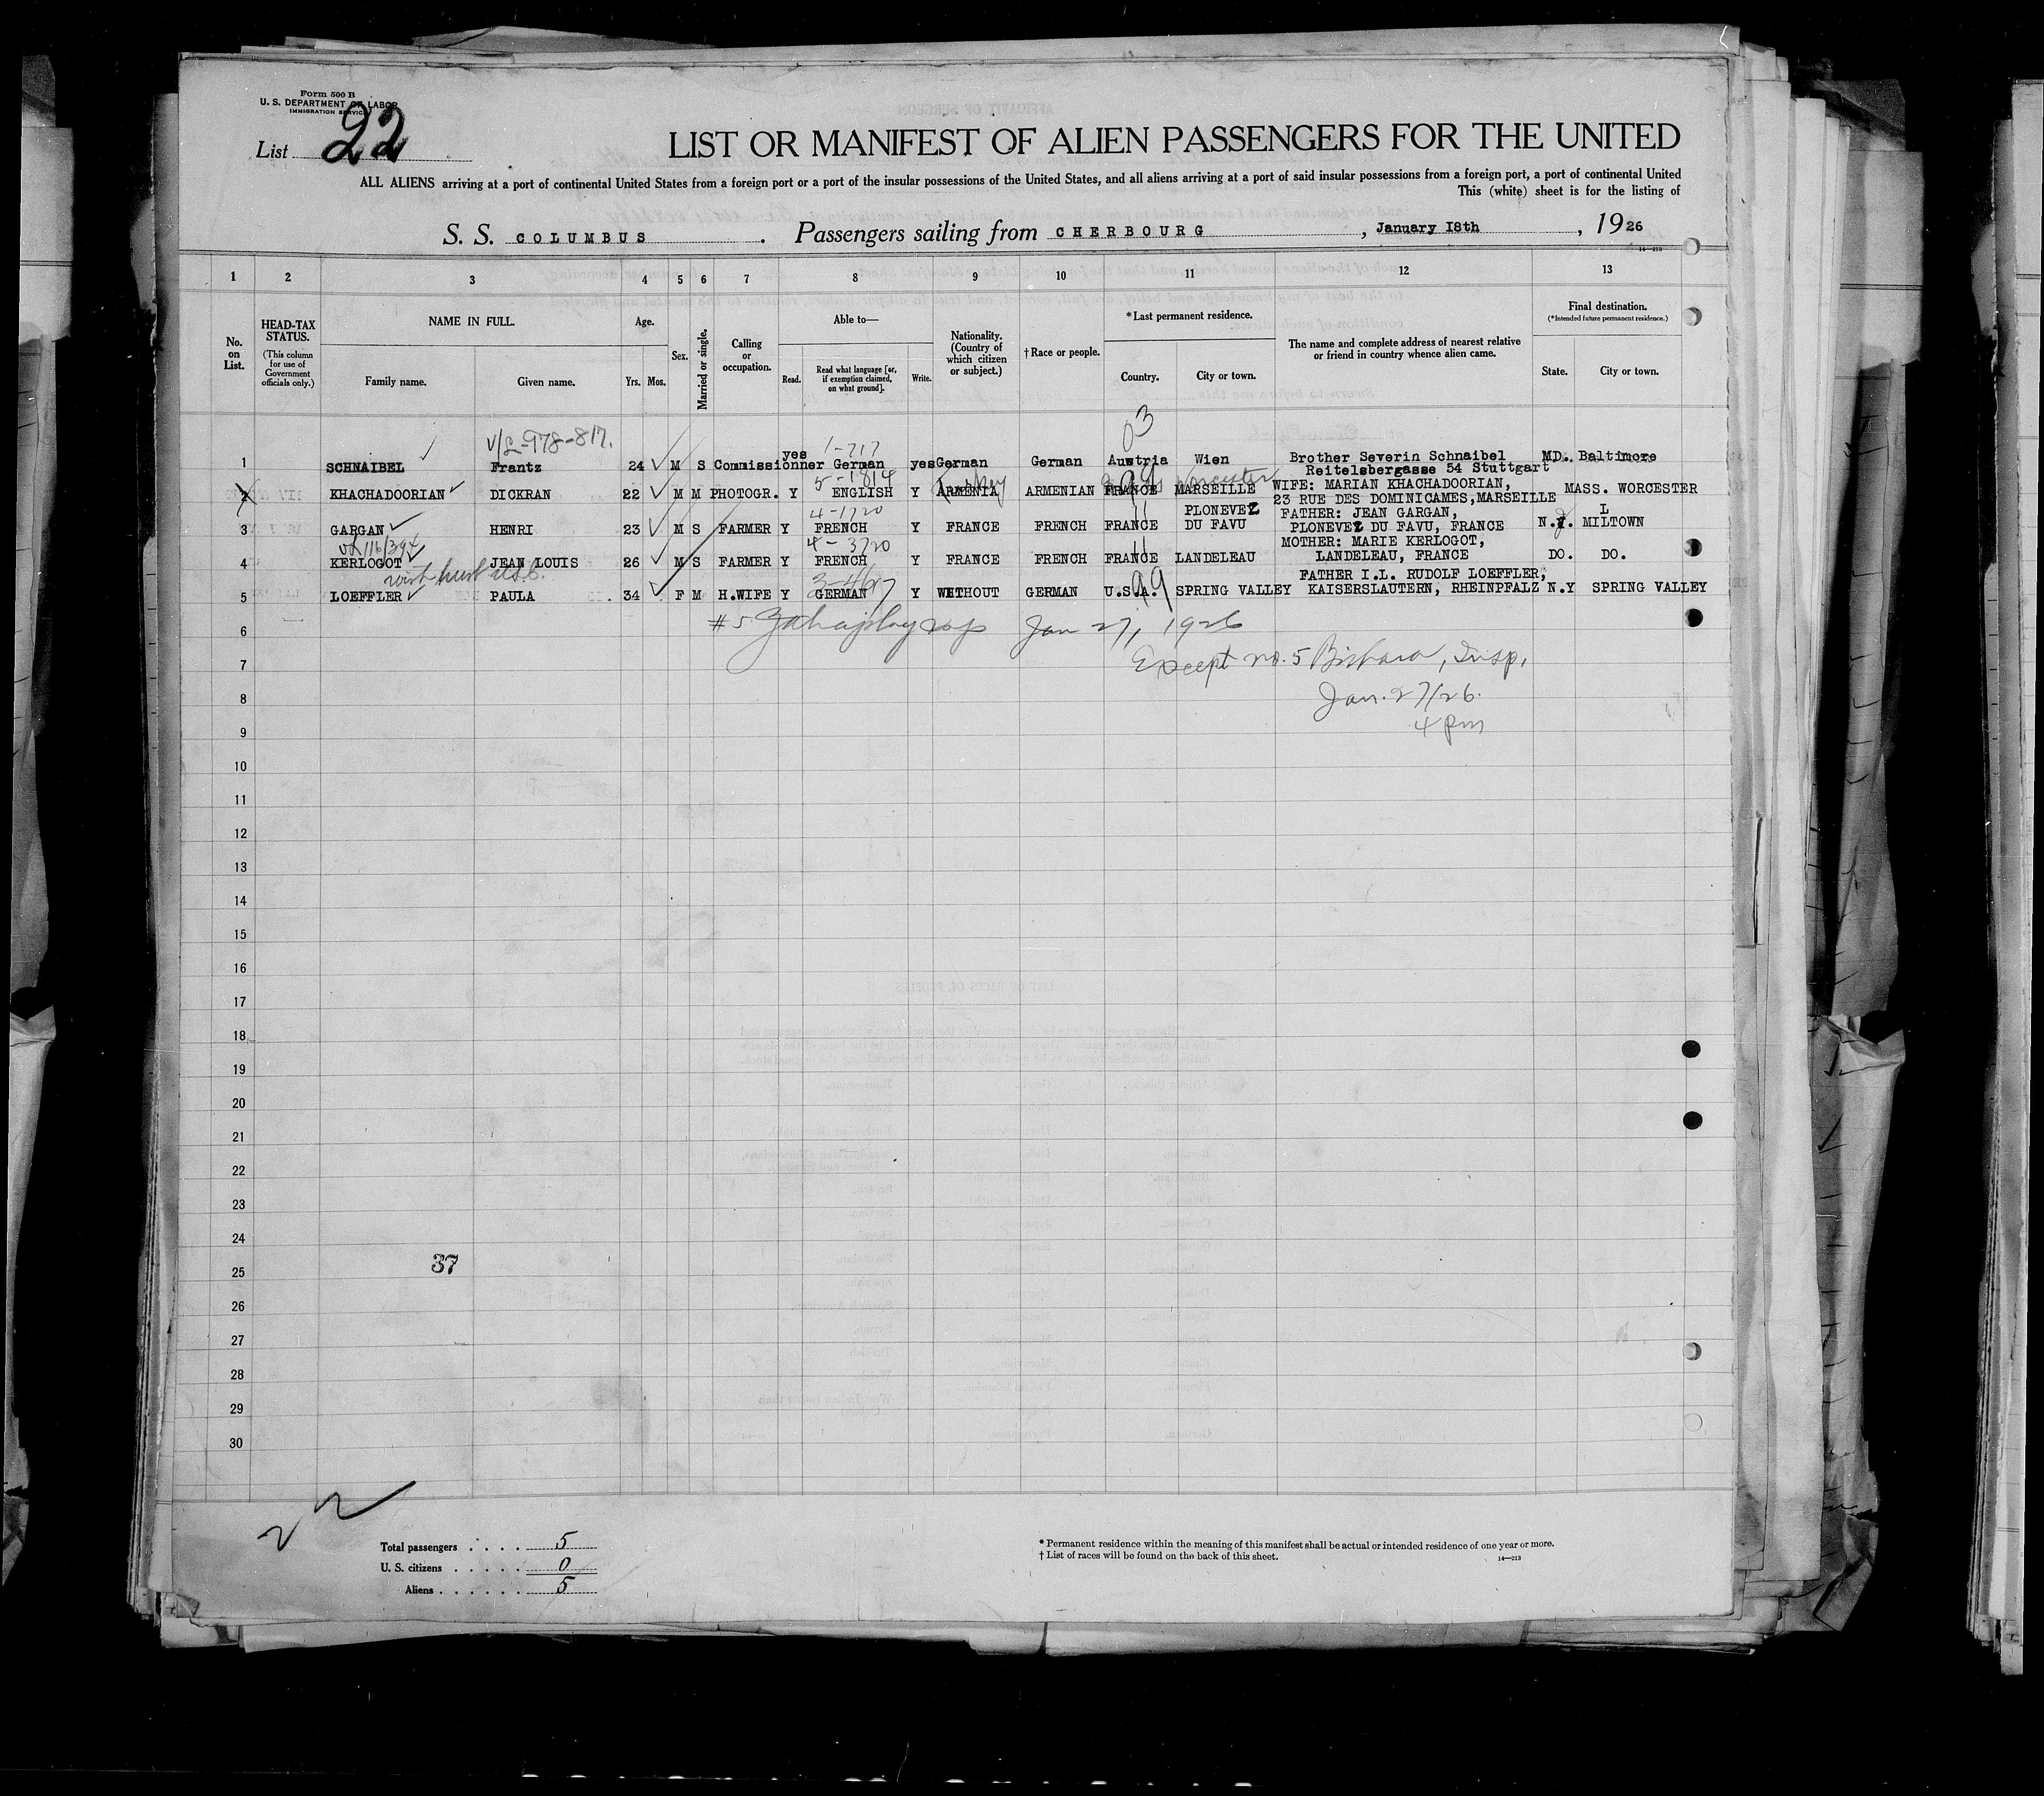 Form 500 B
U. S. DEPARTMENT OF LABOR
IMMIGRATION SERVICE
List 22
LIST OR MANIFEST OF ALIEN PASSENGERS FOR THE UNITED
ALL ALIENS arriving at a port of continental United States from a foreign port or a port of the insular possessions of the United States, and all aliens arriving at a port of said insular possessions from a foreign port, a port of continental United
This (white) sheet is for the listing of
S. S. COLUMBUS . Passengers sailing from CHERBOURG , January 18th , 1926
14—213
1 2 3 4 5 6 7 8 9 10 11 12 13
No. on List.
HEAD-TAX STATUS.
(This column for use of Government officials only.)
NAME IN FULL.
Family name. Given name.
Age.
Yrs. Mos.
Sex.
Married or single.
Calling or occupation.
Able to—
Read. Read what language [or, if exemption claimed, on what ground]. Write.
Nationality. (Country of which citizen or subject.)
†Race or people.
*Last permanent residence.
Country. City or town.
The name and complete address of nearest relative or friend in country whence alien came.
Final destination.
(*Intended future permanent residence.)
State. City or town.
03
V/L-978-817. 1-717
1 SCHNAIBEL Frantz 24 M S Commissionner yes German yes German German Austria Wien Brother Severin Schnaibel MD. Baltimore
Reitelsbergasse 54 Stuttgart
5-1814 Turkey 99 Worcester
2 KHACHADOORIAN DICKRAN 22 M M PHOTOGR. Y ENGLISH Y ARMENIA ARMENIAN FRANCE MARSEILLE WIFE: MARIAN KHACHADOORIAN, MASS. WORCESTER
23 RUE DES DOMINICAMES,MARSEILLE
4-1720 11
3 GARGAN HENRI 23 M S FARMER Y FRENCH Y FRANCE FRENCH FRANCE PLONEVEZ DU FAVU FATHER: JEAN GARGAN, N.Y. MILTOWN
PLONEVEZ DU FAVU, FRANCE
L
4-3720 11
4 KERLOGOT JEAN LOUIS 26 M S FARMER Y FRENCH Y FRANCE FRENCH FRANCE LANDELEAU MOTHER: MARIE KERLOGOT, DO. DO.
LANDELEAU, FRANCE
99
5 LOEFFLER PAULA 34 F M H.WIFE Y GERMAN Y WITHOUT GERMAN U.S.A. SPRING VALLEY FATHER I.L. RUDOLF LOEFFLER, N.Y SPRING VALLEY
KAISERSLAUTERN, RHEINPFALZ
6 #5 Jan 27, 1926
7 Except no. 5 Insp.
8 Jan. 27/26.
9 4 pm
10
11
12
13
14
15
16
17
18
19
20
21
22
23
24
37
25
26
27
28
29
30
22
Total passengers . . . . . 5
U. S. citizens . . . . . . 0
Aliens . . . . . . . 5
* Permanent residence within the meaning of this manifest shall be actual or intended residence of one year or more.
† List of races will be found on the back of this sheet.
14—213